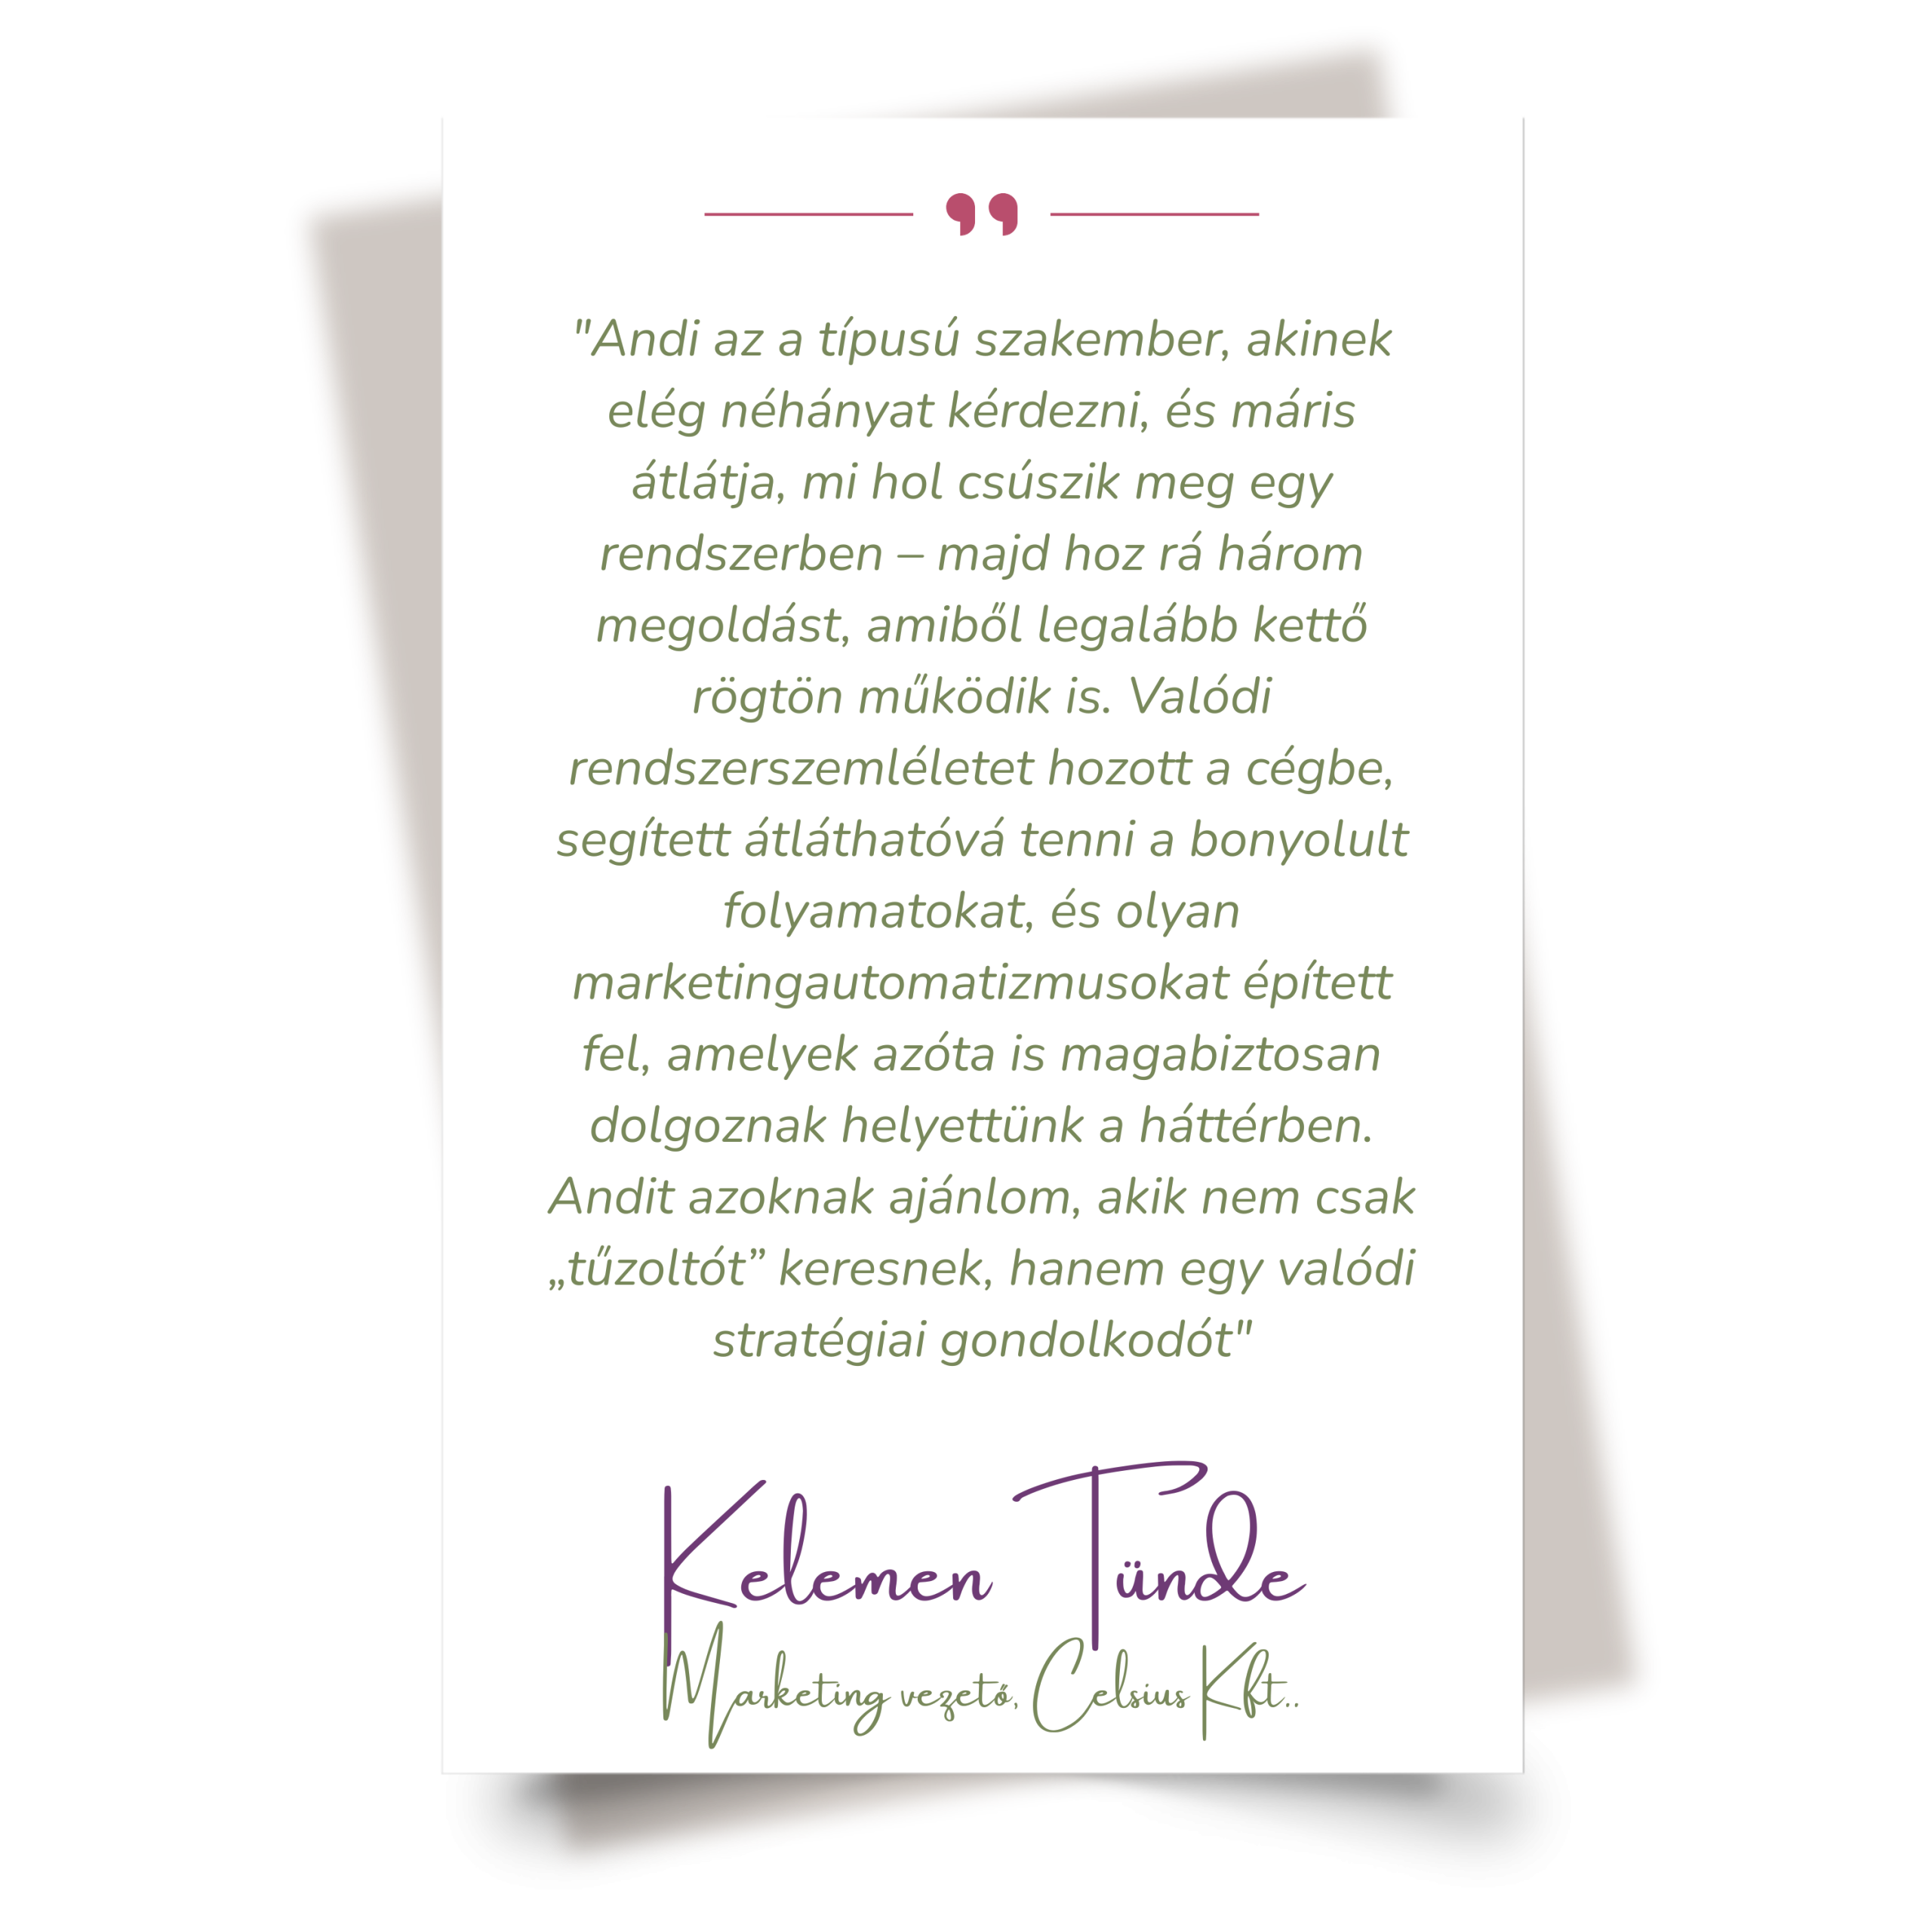 "Andi az a típusú szakember, akinek
elég néhányat kérdezni, és máris
átlátja, mi hol csúszik meg egy
rendszerben – majd hoz rá három
megoldást, amiből legalább kettő
rögtön működik is. Valódi
rendszerszemléletet hozott a cégbe,
segített átláthatóvá tenni a bonyolult
folyamatokat, és olyan
marketingautomatizmusokat épített
fel, amelyek azóta is magabiztosan
dolgoznak helyettünk a háttérben.
Andit azoknak ajánlom, akik nem csak
„tűzoltót” keresnek, hanem egy valódi
stratégiai gondolkodót"
Kelemen Tünde
Marketing vezető, Celsius Kft..